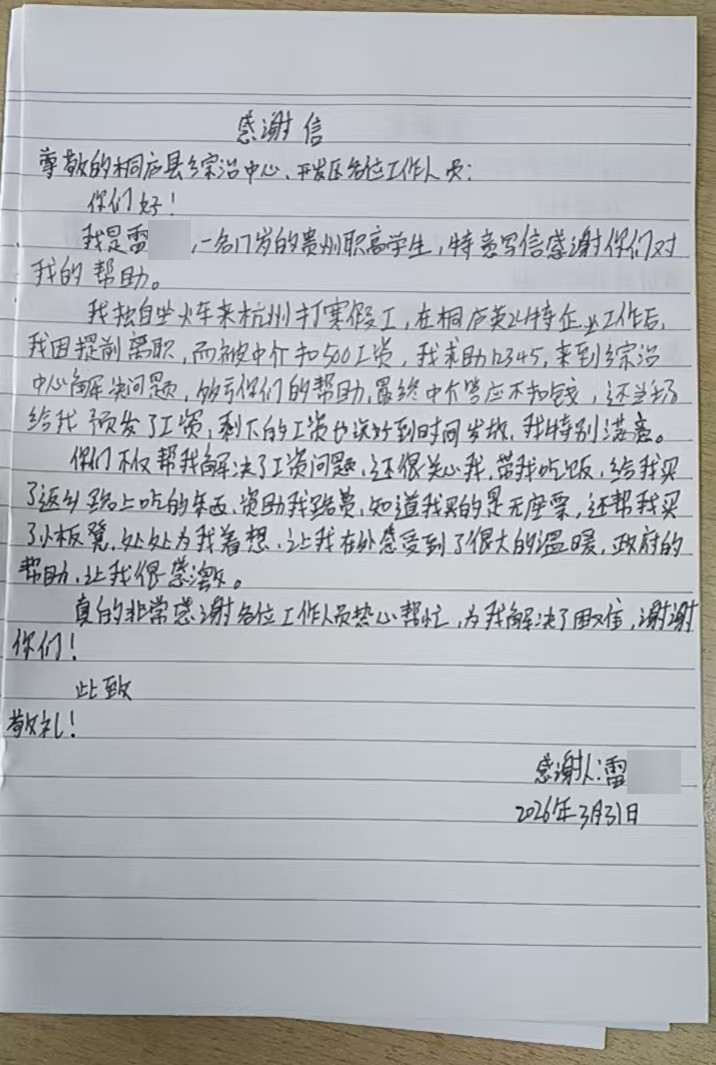 感谢信
尊敬的桐庐县综治中心、开发区各位工作人员:
你们好!
我是雷 ,一名17岁的贵州职高学生,特意写信感谢你们对
我的帮助。
我独自坐火车来杭州打寒假工,在桐庐英 特企业工作后,
我因提前离职,而被中介扣500工资,我求助12345,来到综治
中心解决问题,够亏你们的帮助,最终中介答应不扣钱,还当场
给我预发了工资,剩下的工资也谈好到时间发放,我特别满意。
你们不仅帮我解决了工资问题,还很关心我,带我吃饭,给我买
了返乡路上吃的东西,资助我路费,知道我买的是无座票,还帮我买
了小板凳,处处为我着想,让我在外感受到了很大的温暖,政府的
帮助,让我很感激。
真的非常感谢各位工作人员热心帮忙,为我解决了困难,谢谢
你们!
此致
敬礼!
感谢人:雷
2026年3月31日